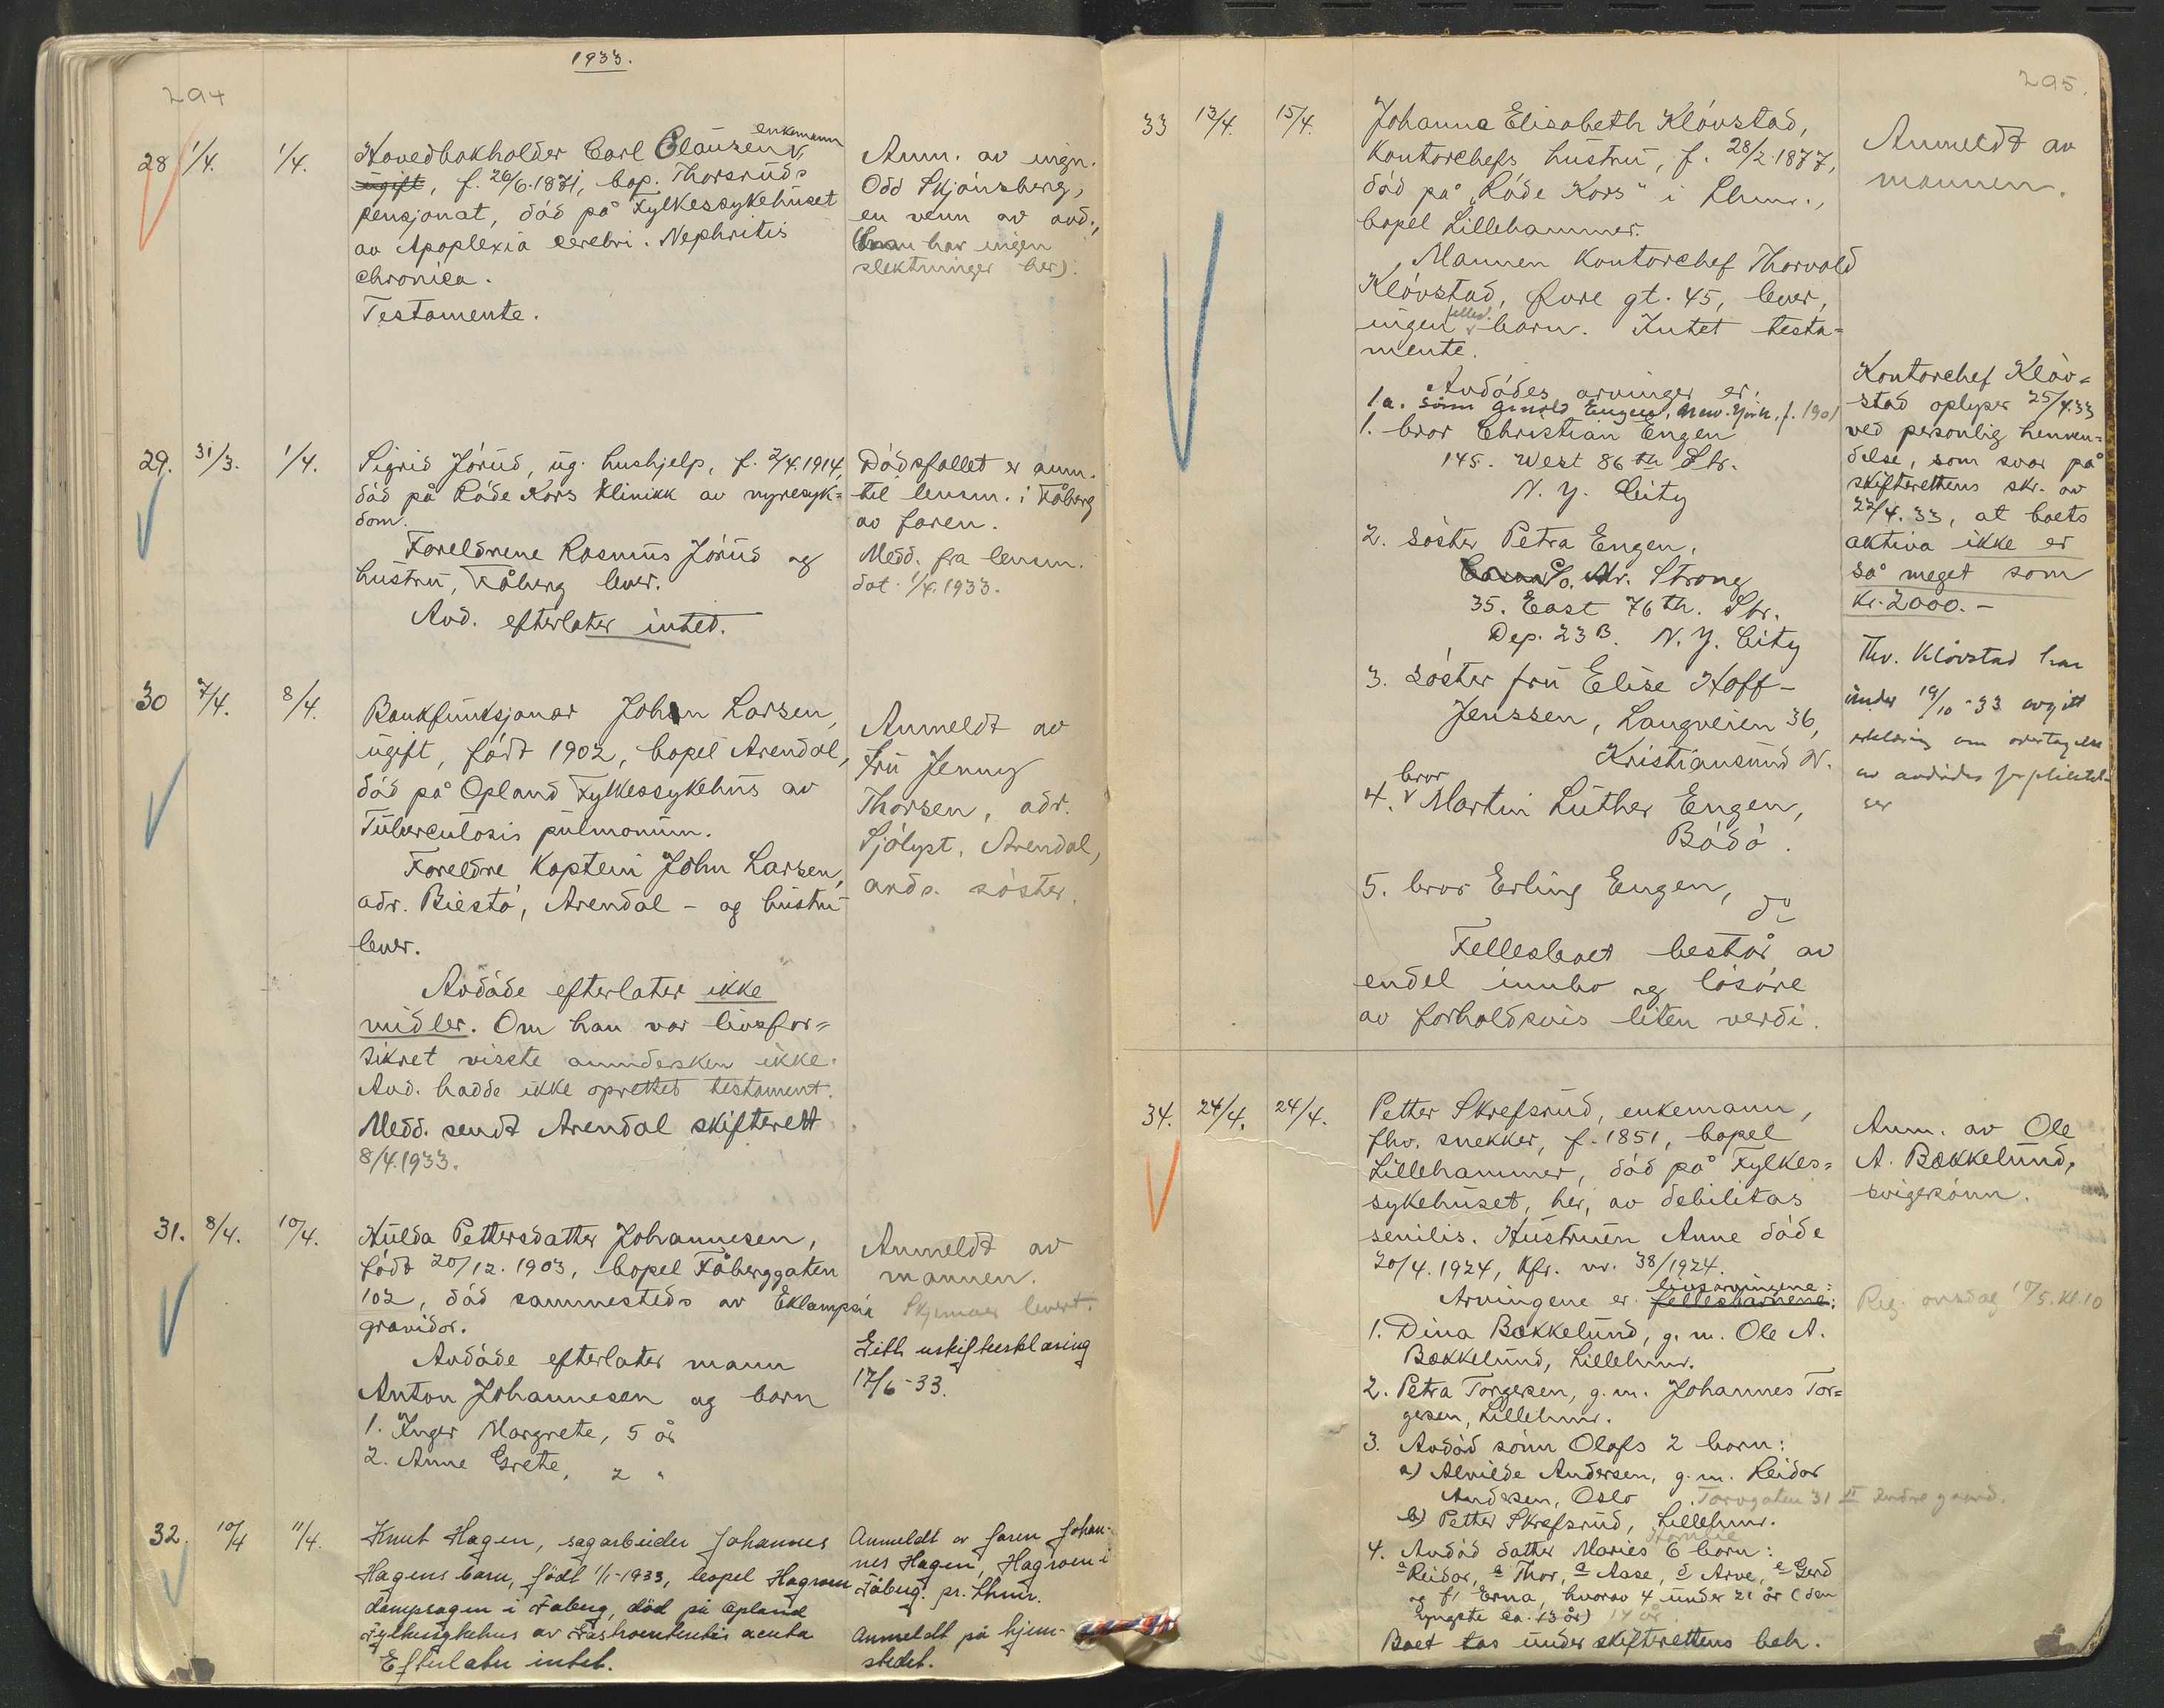 1933.
294
28 1/4. 1/4.
Hovedbokholder Carl Clausen, enkemann
ugift, f. 26/6.1871, bop. Thorsruds
pensjonat, död på Fylkessykehuset
av Apoplexia cerebri. Nephritis
chronica.
Testamente.
Anm. av ingn.
Odd Skjönsberg,
en venn av avd.,
(han har ingen
slektninger her).
29. 31/3. 1/4.
Sigrid Jörud, ug. hushjelp, f. 2/4.1914,
död på Röde Kors Klinikk av nyresyk=
dom.
Foreldrene Rasmus Jörud og
hustru, Fåberg lever.
Avd. efterlater intet.
Dödsfallet er anm.
til lensm. i Fåberg
av faren.
Medd. fra lensm.
dat. 1/4.1933.
30 7/4. 8/4.
Bankfunksjonær Johan Larsen,
ugift, född 1902, bopel Arendal,
död på Opland Fylkessykehus av
Tuberculosis pulmonum.
Foreldre Kaptein John Larsen,
adr. Biestö, Arendal - og hustru
lever.
Avdöde efterlater ikke
midler. Om han var livsfor=
sikret visste anmdersken ikke.
Avd. hadde ikke oprettet testament.
Medd. sendt Arendal skifterett
8/4.1933.
Anmeldt av
fru Jenny
Thorsen, adr.
Sjölyst, Arendal,
avds. söster.
31. 8/4. 10/4.
Hulda Pettersdatter Johannesen,
född 20/12.1903, bopel Fåberggaten
102, död sammesteds av Eklampsia
gravidor.
Avdöde efterlater mann
Anton Johannesen og barn
1. Inger Margrete, 5 år
2. Anne Grete, 2 "
Anmeldt av
mannen.
Skjemaer levert.
Eith uskifteerklæring
17/6-33.
32. 10/4 11/4.
Knut Hagen, sagarbeider Johannes
Hagens barn, födt 1/1-1933, bopel Hagroen
dampsagen i Faberg, död på Opland
fylkessykehus av Gastroenteritis acuta
Efterlater intet.
Anmeldt av faren Johan-
nes Hagen, Hagroen i
Fåberg pr. Lhmr.
Anmeldt på hjem-
stedet.
295.
33 13/4. 15/4.
Johanna Elisabeth Klövstad,
Kontorchefs hustru, f. 28/2.1877,
död på "Röde Kors" i Lhmr.,
bopel Lillehammer.
Mannen Kontorchef Thorvald
Klövstad, Fure gt. 45, lever,
ingen felles. barn. Intet testa=
mente.
Avdödes arvinger er:
1.a. sönn Arnold Engen, New-York, f. 1901
1. bror Christian Engen
145. West 86th Str.
N. Y. City
2. söster Petra Engen,
c/o. Mr. Strong
35. East 76th. Str.
Dep. 23B. N. Y. City
3. söster fru Elise Hoff-
Jenssen, Langveien 36,
Kristiansund N.
4. bror Martin Luther Engen,
Bodö.
5. bror Erling Engen,
do
Fellesboet består av
endel innbo og lösöre
av forholdsvis liten verdi.
Anmeldt av
mannen.
Kontorchef Klöv=
stad oplyser 25/4.33
ved personlig henven=
delse, som svar på
skifterettens skr. av
22/4.33, at boets
aktiva ikke er
så meget som
kr. 2000.-
Thv. Klövstad har
under 19/10-33 avgitt
erklæring om overtagelse
av avdödes forpliktel-
ser
34. 24/4. 24/4.
Petter Skrefsrud, enkemann,
fhv. snekker, f. 1851, bopel
Lillehammer, död på Fylkes=
sykehuset, her, av debilitas
senilis. Hustruen Anne döde
20/4.1924, kfr. nr. 38/1924.
Arvingene er fellesbarnene: livsarvingene:
1. Dina Bakkelund, g. m. Ole A.
Bakkelund, Lillehmr.
2. Petra Torgersen, g. m. Johannes Tor=
gersen, Lillehmr.
3. Avdöd sönn Olafs 2 barn:
a) Alvilde Andersen, g. m. Reidar
Andersen, Oslo Torvgaten 31 II Indre gaard.
b) Petter Skrefsrud, Lillehmr.
4. Avdöd datter Maries 6 barn:
a Reidar, Thor, Aase, d Arve, e Gerd
og f Erna, hvorav 4 under 21 år (den
yngste ca. 13 år) 14 år
Boet tas under skifterettens beh.
Anm. av Ole
A. Bakkelund,
svigersönn.
Reg. onsdag 10/5. kl. 10